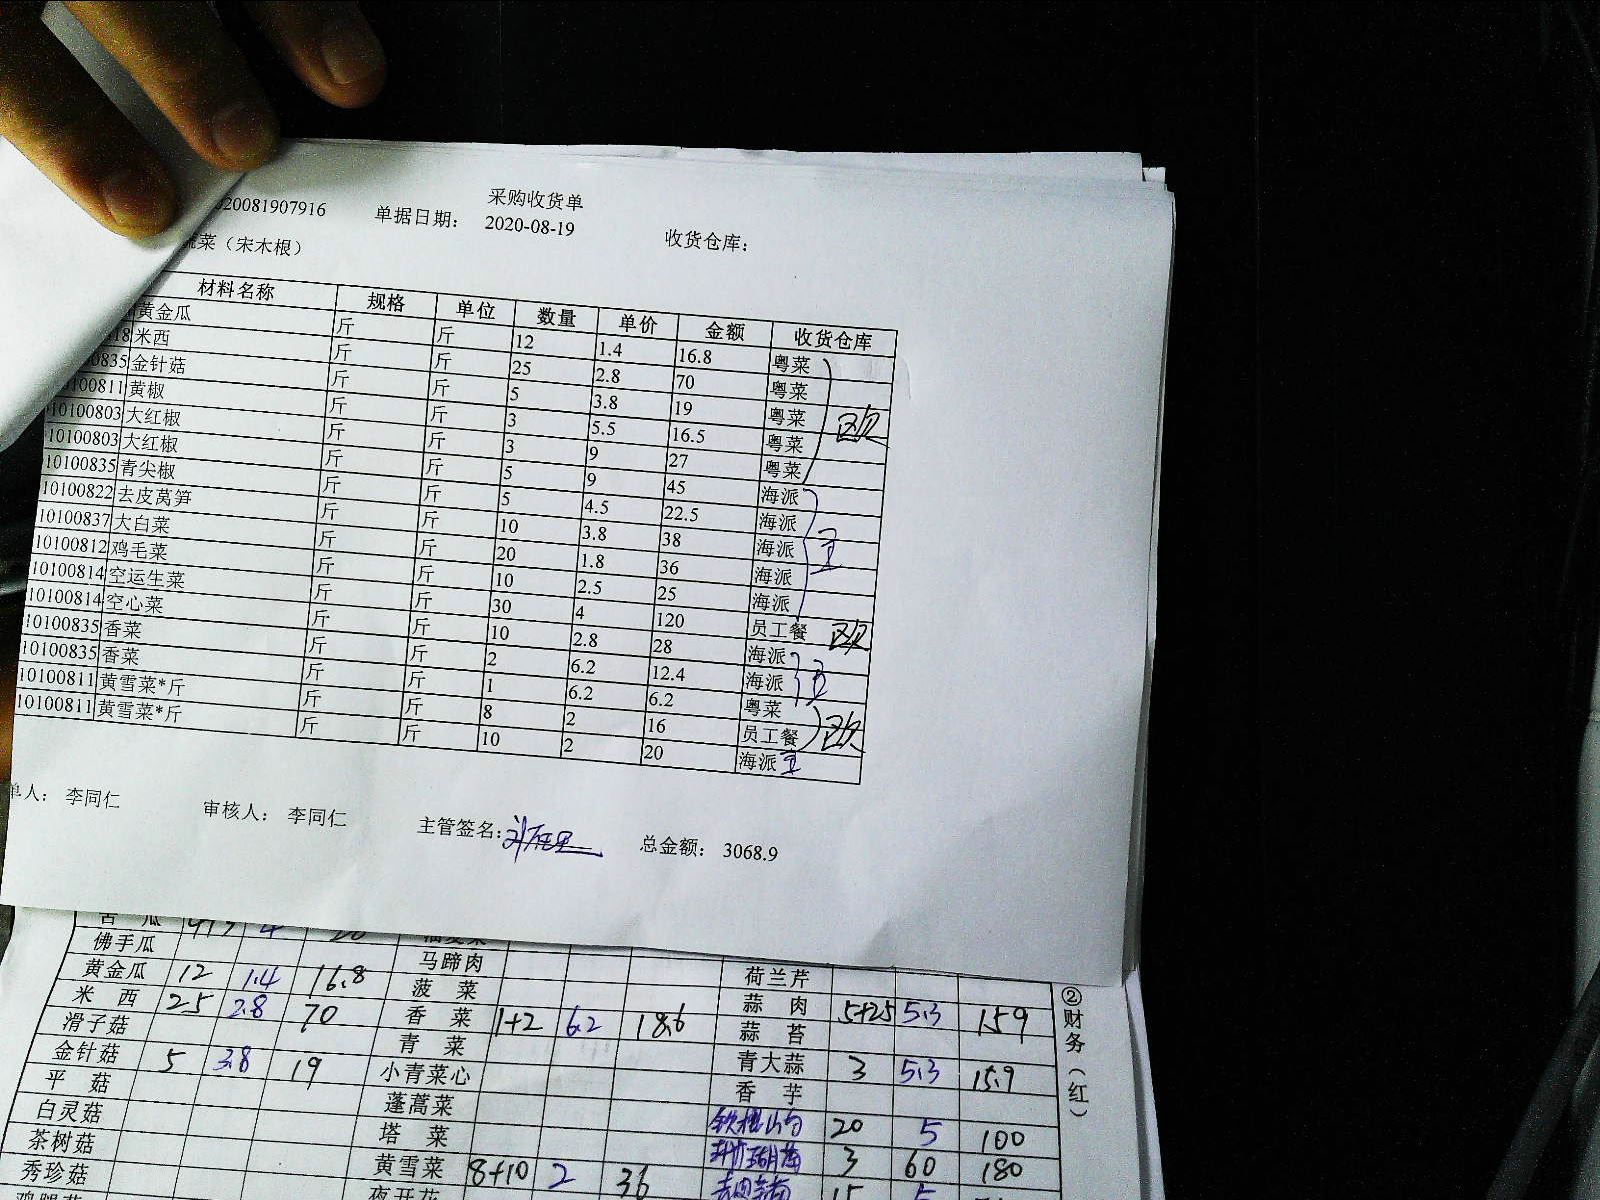 采购收货单
20081907916 单据日期: 2020-08-19 收货仓库:
蔬菜（宋木根）
材料名称 规格 单位 数量 单价 金额 收货仓库
黄金瓜 斤 斤 12 1.4 16.8 粤菜
18 米西 斤 斤 25 2.8 70 粤菜
0835 金针菇 斤 斤 5 3.8 19 粤菜
100811 黄椒 斤 斤 3 5.5 16.5 粤菜 欧
10100803 大红椒 斤 斤 3 9 27 粤菜
10100803 大红椒 斤 斤 5 9 45 海派
10100835 青尖椒 斤 斤 5 4.5 22.5 海派
10100822 去皮莴笋 斤 斤 10 3.8 38 海派 王
10100837 大白菜 斤 斤 20 1.8 36 海派
10100812 鸡毛菜 斤 斤 10 2.5 25 海派
10100814 空运生菜 斤 斤 30 4 120 员工餐 欧
10100814 空心菜 斤 斤 10 2.8 28 海派
10100835 香菜 斤 斤 2 6.2 12.4 海派 王
10100835 香菜 斤 斤 1 6.2 6.2 粤菜
10100811 黄雪菜*斤 斤 斤 8 2 16 员工餐 欧
10100811 黄雪菜*斤 斤 斤 10 2 20 海派 王
单人: 李同仁 审核人: 李同仁 主管签名: 总金额: 3068.9
苦 瓜
佛手瓜 马蹄肉 荷兰芹
黄金瓜 12 1.4 16.8 菠 菜 蒜 肉 5+25 5.3 159
米 西 25 2.8 70 香 菜 1+2 6.2 18.6 蒜 苔
滑子菇 青 菜 青大蒜 3 5.3 15.9
金针菇 5 3.8 19 小青菜心 香 芋
平 菇 蓬蒿菜 铁棍山药 20 5 100
白灵菇 塔 菜 3 60 180
茶树菇 黄雪菜 8+10 2 36 15 5
秀珍菇 夜开花
②财务（红）